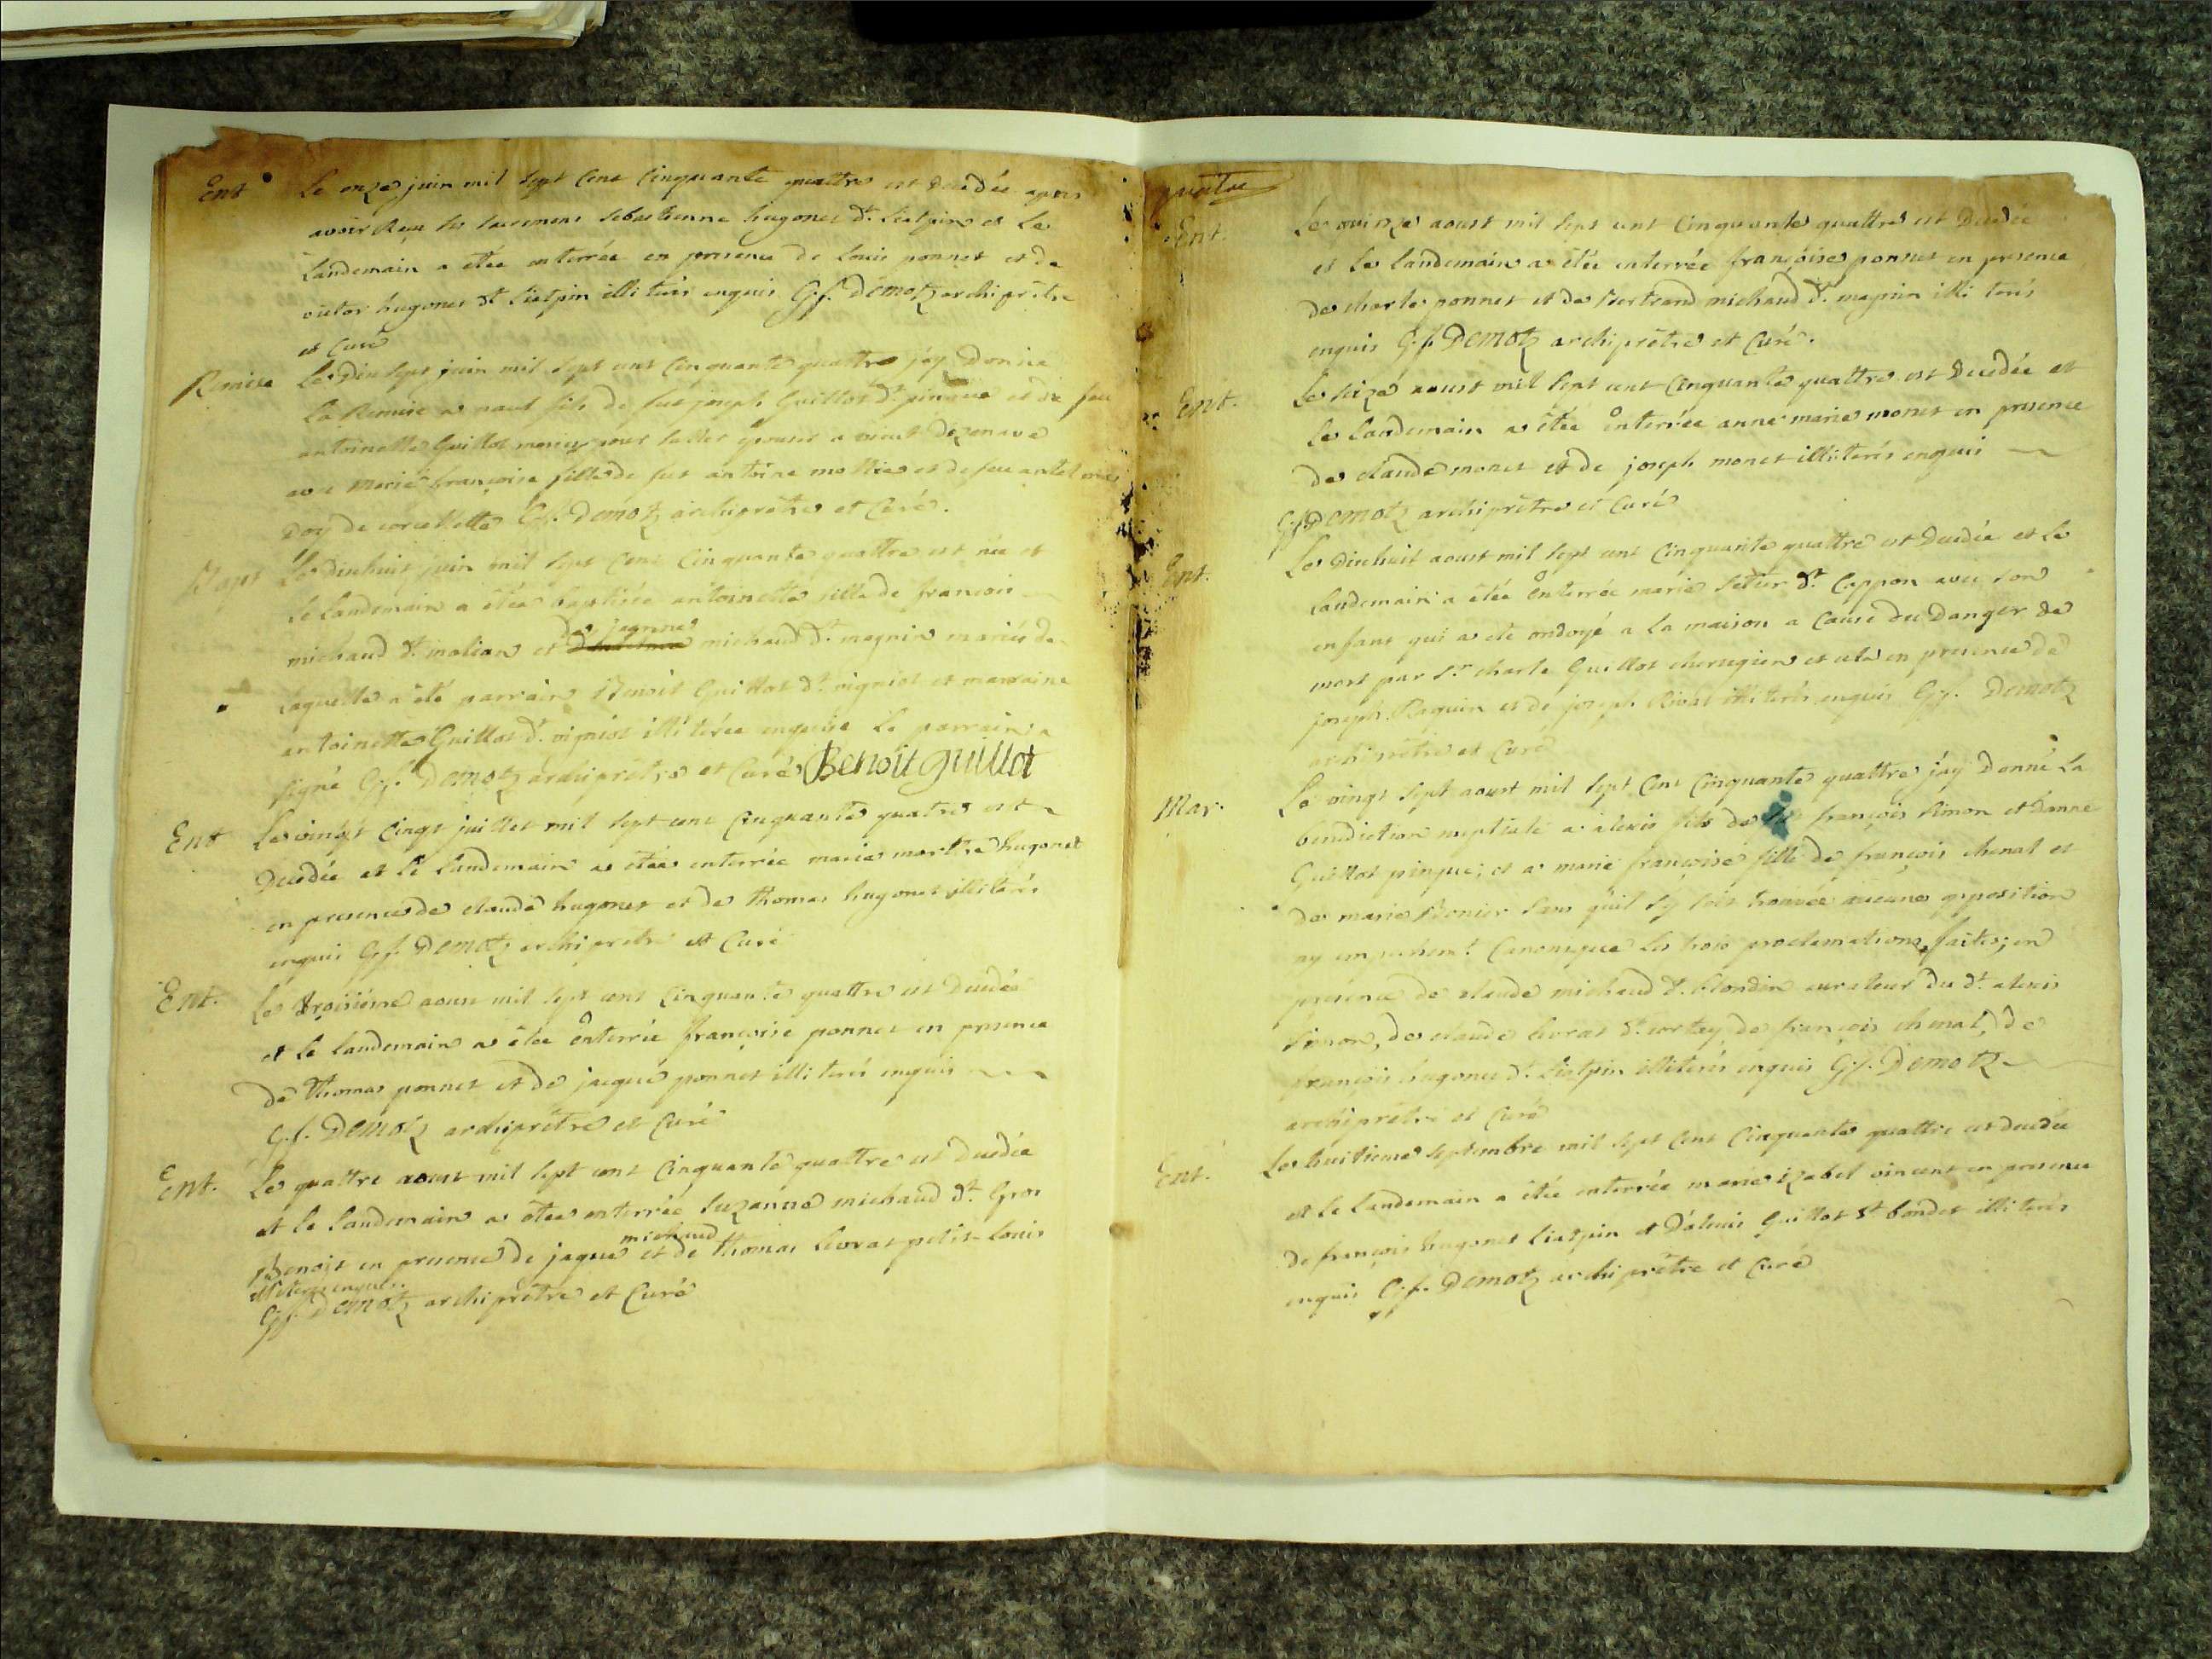 Ent Le onze juin mil sept cent cinquante quattre est decedée apres
avoir Reçu les sacremens sebastienne hugonet dt. liatpin et le
landemain a étée enterrée en presence de Louis ponnet et de
victor hugonet dt liatpin illiterés enquis G.f. Demotz archiprêtre
et Curé
Remise Le dix sept juin mil sept cent cinquante quattre j'ay donné
la Remise a fils de feu joseph Guillot dt. pinque et de feu
antoinette Guillot mariés pour aller épouser a
avec Marie françoise fille de feu antoine et de feu
Doy de G.f. Demotz archiprêtre et Curé.
Bapt Le dixhuit juin mil sept cent cinquante quattre est née et
le landemain a étée baptisée antoinette fille de françois
michaud dt. molian et de jaqueme michaud dt. magnin mariés de
laquelle a été parrain Benoit Guillot dt. vigniot et marraine
antoinette Guillot dt. vigniot illiterée enquise le parrain a
signé G.f. Demotz archiprêtre et Curé Benoit guillot
Ent Le vingt cinqt juillet mil sept cent cinquante quatre est
decedée et le landemain a étée enterrée marie marthe hugonet
en presence de claude hugonet et de thomas hugonet illiterés
enquis G.f. Demotz archiprêtre et Curé
Ent. Le troisième aoust mil sept cent cinquante quattre est decedée
et le landemain a étée enterrée françoise ponnet en presence
de thomas ponnet et de jaque ponnet illiterés enquis
G.f. Demotz archiprêtre et Curé
Ent. Le quattre aoust mil sept cent cinquante quattre est decedée
et le landemain a étée enterrée suzanne michaud dt. Gros
michaud
Benoit en presence de jaque et de thomas livrat petit-Louis
illiterés enquis.
G.f. Demotz archiprêtre et Curé
quatre
Ent. Le quinze aoust mil sept cent cinquante quattre est decedée
et le landemain a étée enterrée françoise ponnet en presence
de charle ponnet et de Bertrand michaud dt. magnin illiterés
enquis G.f. Demotz archiprêtre et Curé.
Ent. Le seize aoust mil sept cent cinquante quattre est decedée et
le landemain a étée enterrée anne marie monet en presence
de claude monet et de joseph monet illiterés enquis
G.f. Demotz archiprêtre et Curé
Ent. Le dixhuit aoust mil sept cent cinquante quattre est decedée et le
landemain a étée enterrée marie dt. Cappon avec son
enfant qui a été ondoyé a la maison a cause du danger de
mort par Sr. charle Guillot cherugien et cela en presence de
joseph Raquin et de joseph Rivat illiterés enquis G.f. Demotz
archiprêtre et Curé
Mar. Le vingt sept aoust mil sept cent cinquante quattre j'ay donné la
benediction nuptiale a alexis fils de françois simon et d'anne
Guillot pinque; et a marie françoise fille de françois chenal et
de marie Bonier sans qu'il s'y soit trouvée aucune opposition
ny empechemt. Canonique les trois proclamations faites; en
présence de claude michaud dt. blondin curateur du dt. alexis
simon, de claude livrat dt. cortey, de françois chenal, de
françois hugonet dt. liatpin illiterés enquis G.f. Demotz
archiprêtre et Curé
Ent. Le huitieme septembre mil sept cent cinquante quattre est decedée
et le landemain a étée enterrée marie izabel vincent en presence
de françois hugonet liatpin et d'alexis Guillot dt bondet illiterés
enquis G.f. Demotz archiprêtre et Curé